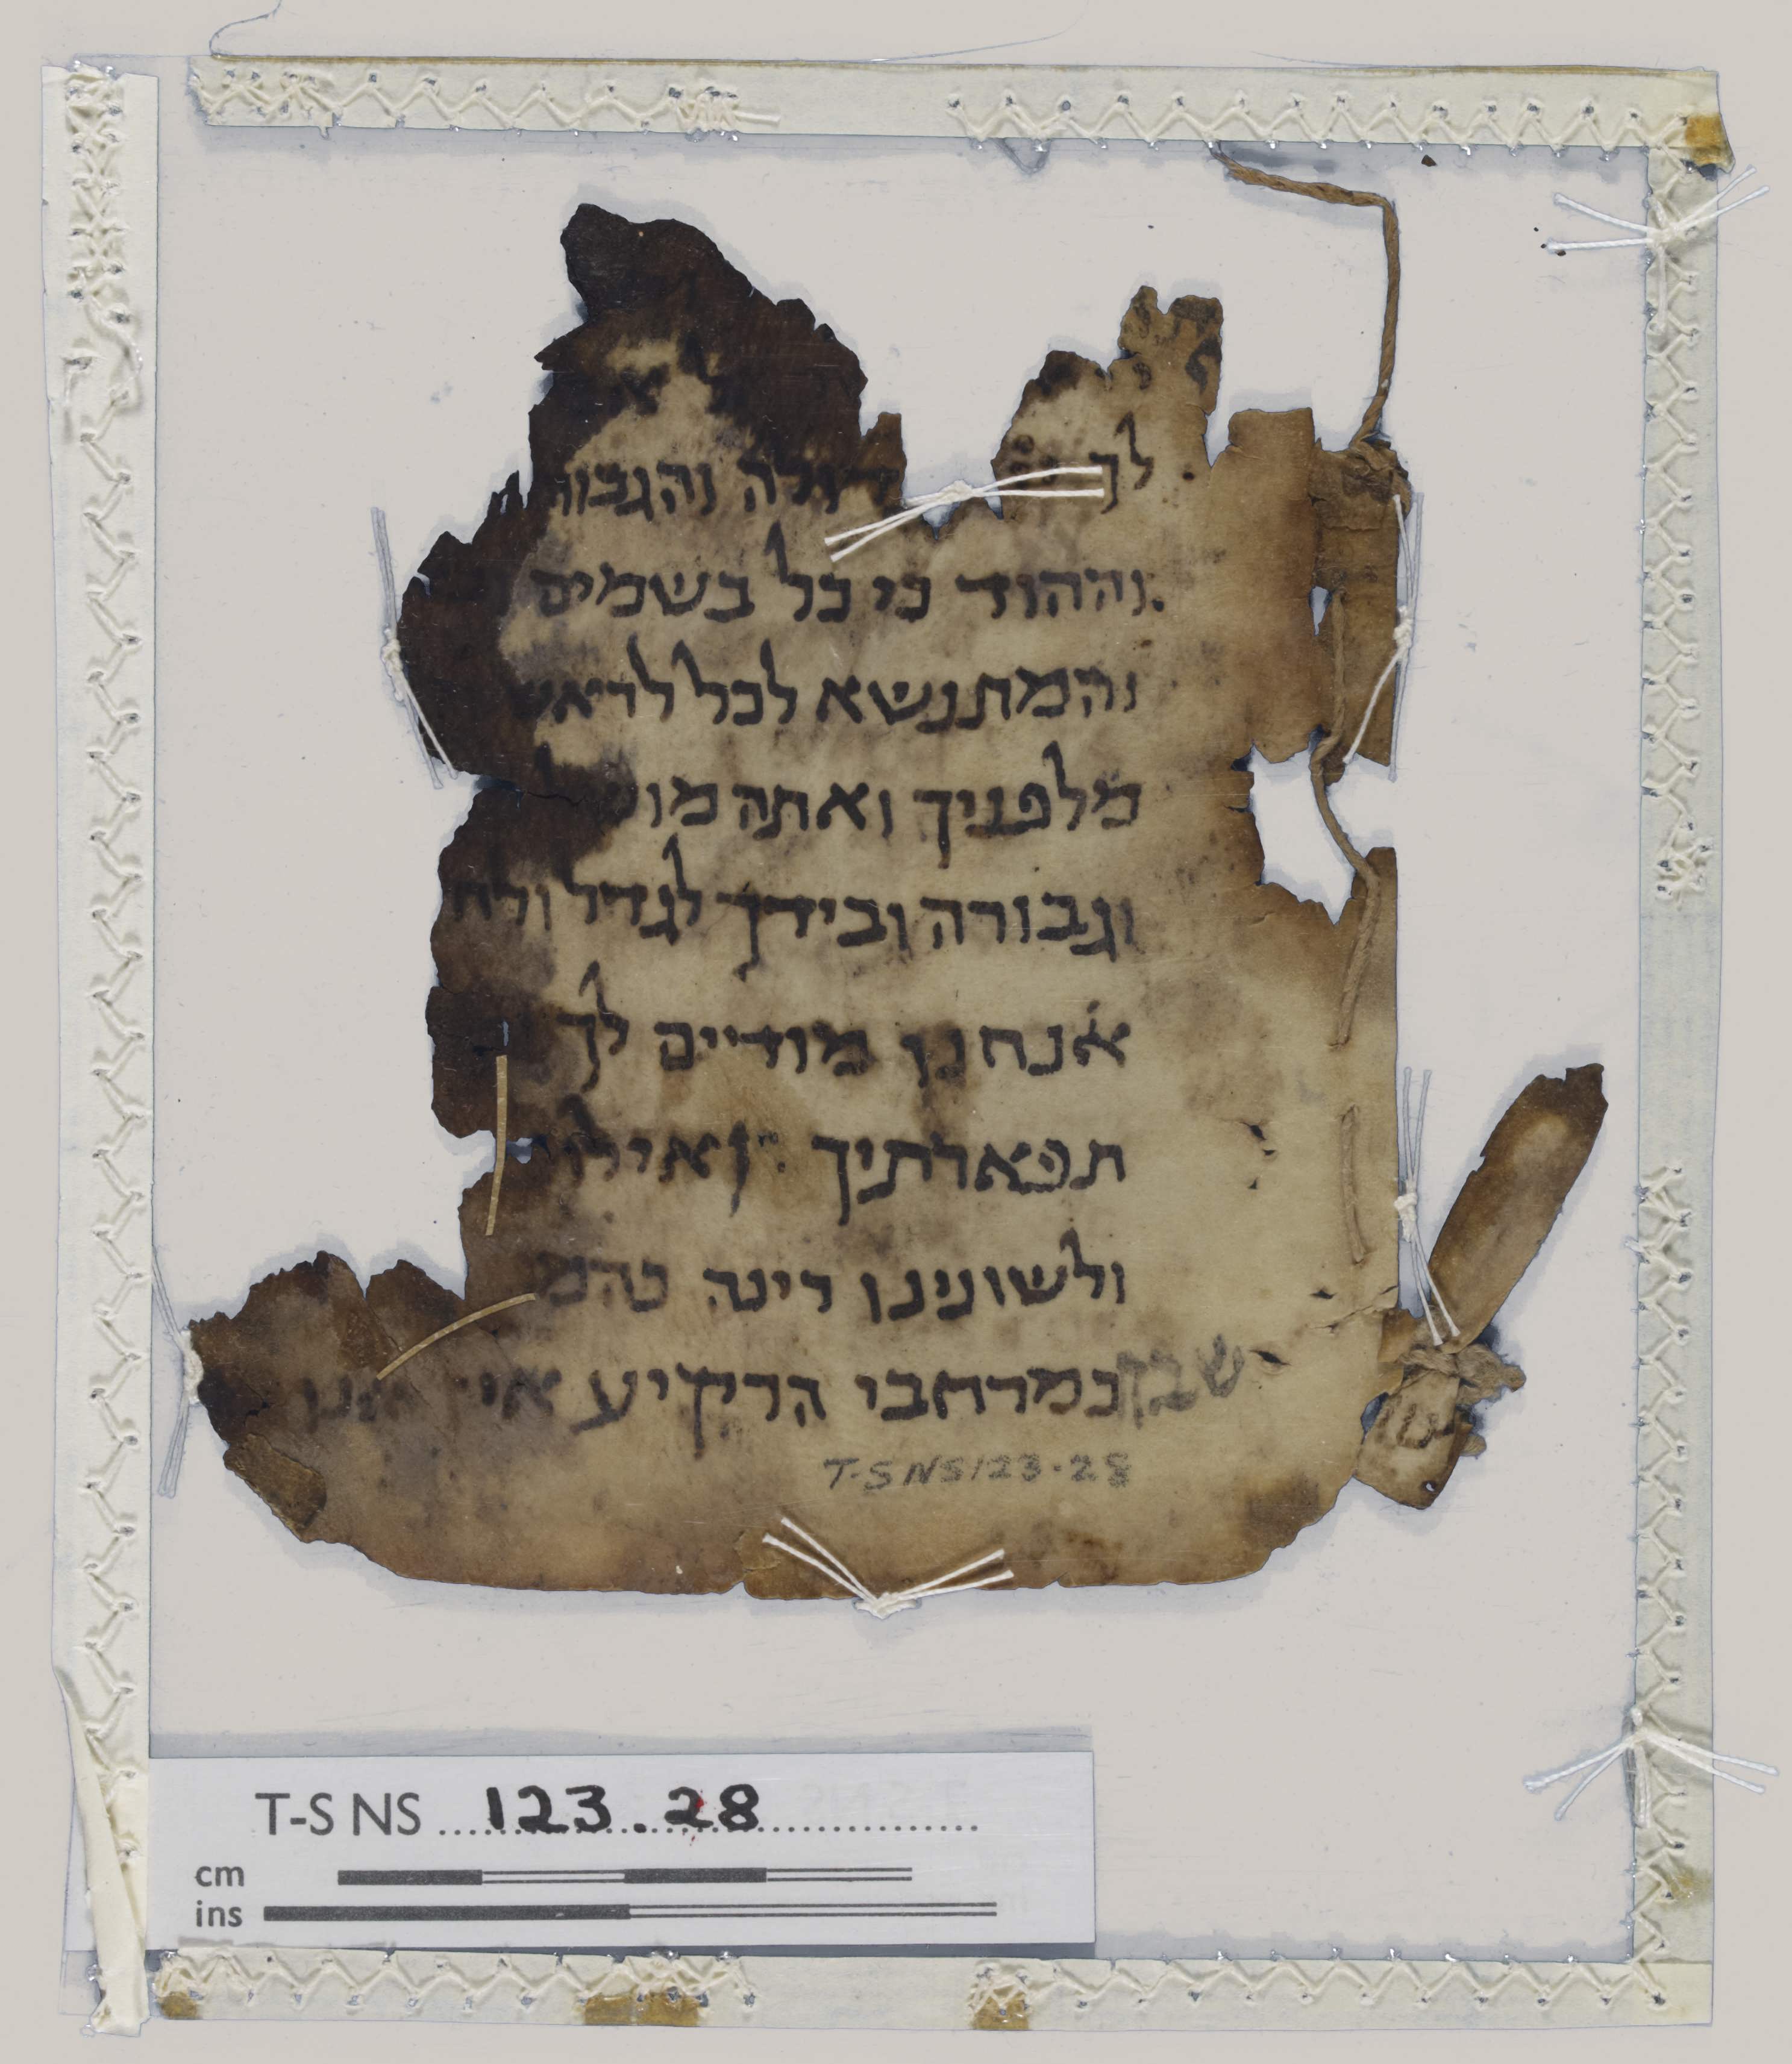 לך דולה והגבור
וההוד כי כל בשמים
והמתנשא לכל לראש
מלפניך ואתה מוש
וגבורה ובידך לגדל ולח
אנחנו מודיים לך
תפארתיך ואילו
ולשונינו רינה כהמ
שבח כמרחבי הרקיע אי
T-S NS 123.28
T-S NS 123.28
cm
ins